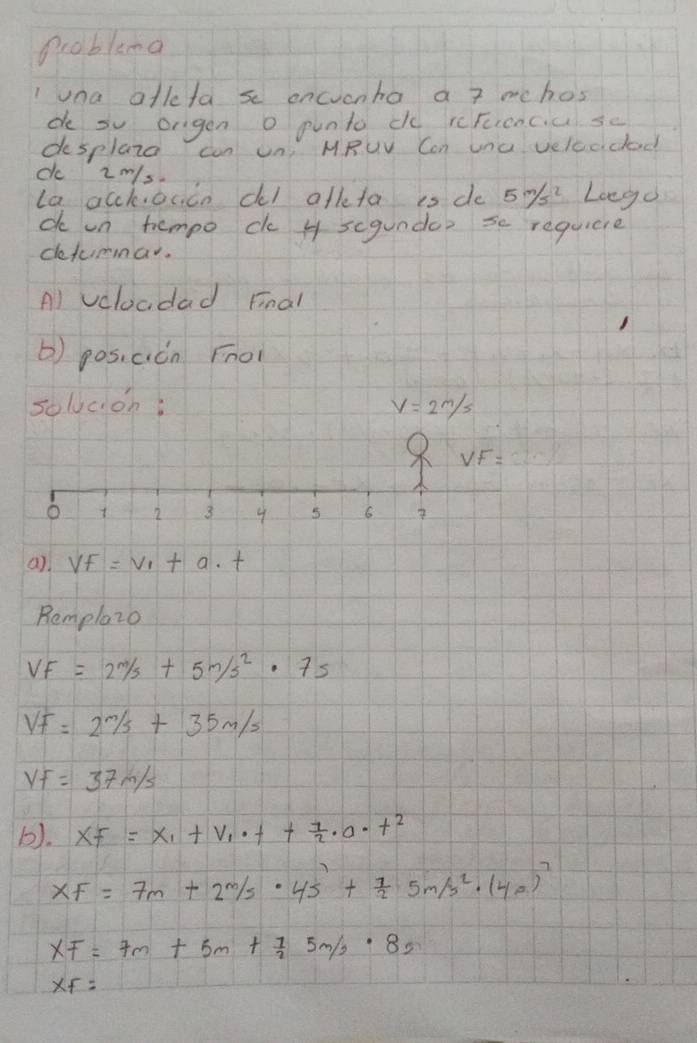 problema
1 una atleta se encuentra a 7 metros
de su origen o punto de referencia se
desplaza con un, MRUV Con una velocidad
de 2m/s.
La aceleración del atleta es de 5m/s² Luego
de un tiempo de 4 segundos se requiere
determinar.
A) velocidad Final
b) posición Final
solución:
V = 2m/s
VF =
0 1 2 3 4 5 6 7
a). VF = V₁ + a . t
Remplazo
VF = 2m/s + 5m/s² . 7s
VF = 2m/s + 35m/s
VF = 37m/s
b). XF = X₁ + V₁ . t + 1/2 . a . t²
XF = 7m + 2m/s . 4s + 1/2 5m/s² . (4s)²
XF = 7m + 5m + 1/2 5m/s . 8s
XF =